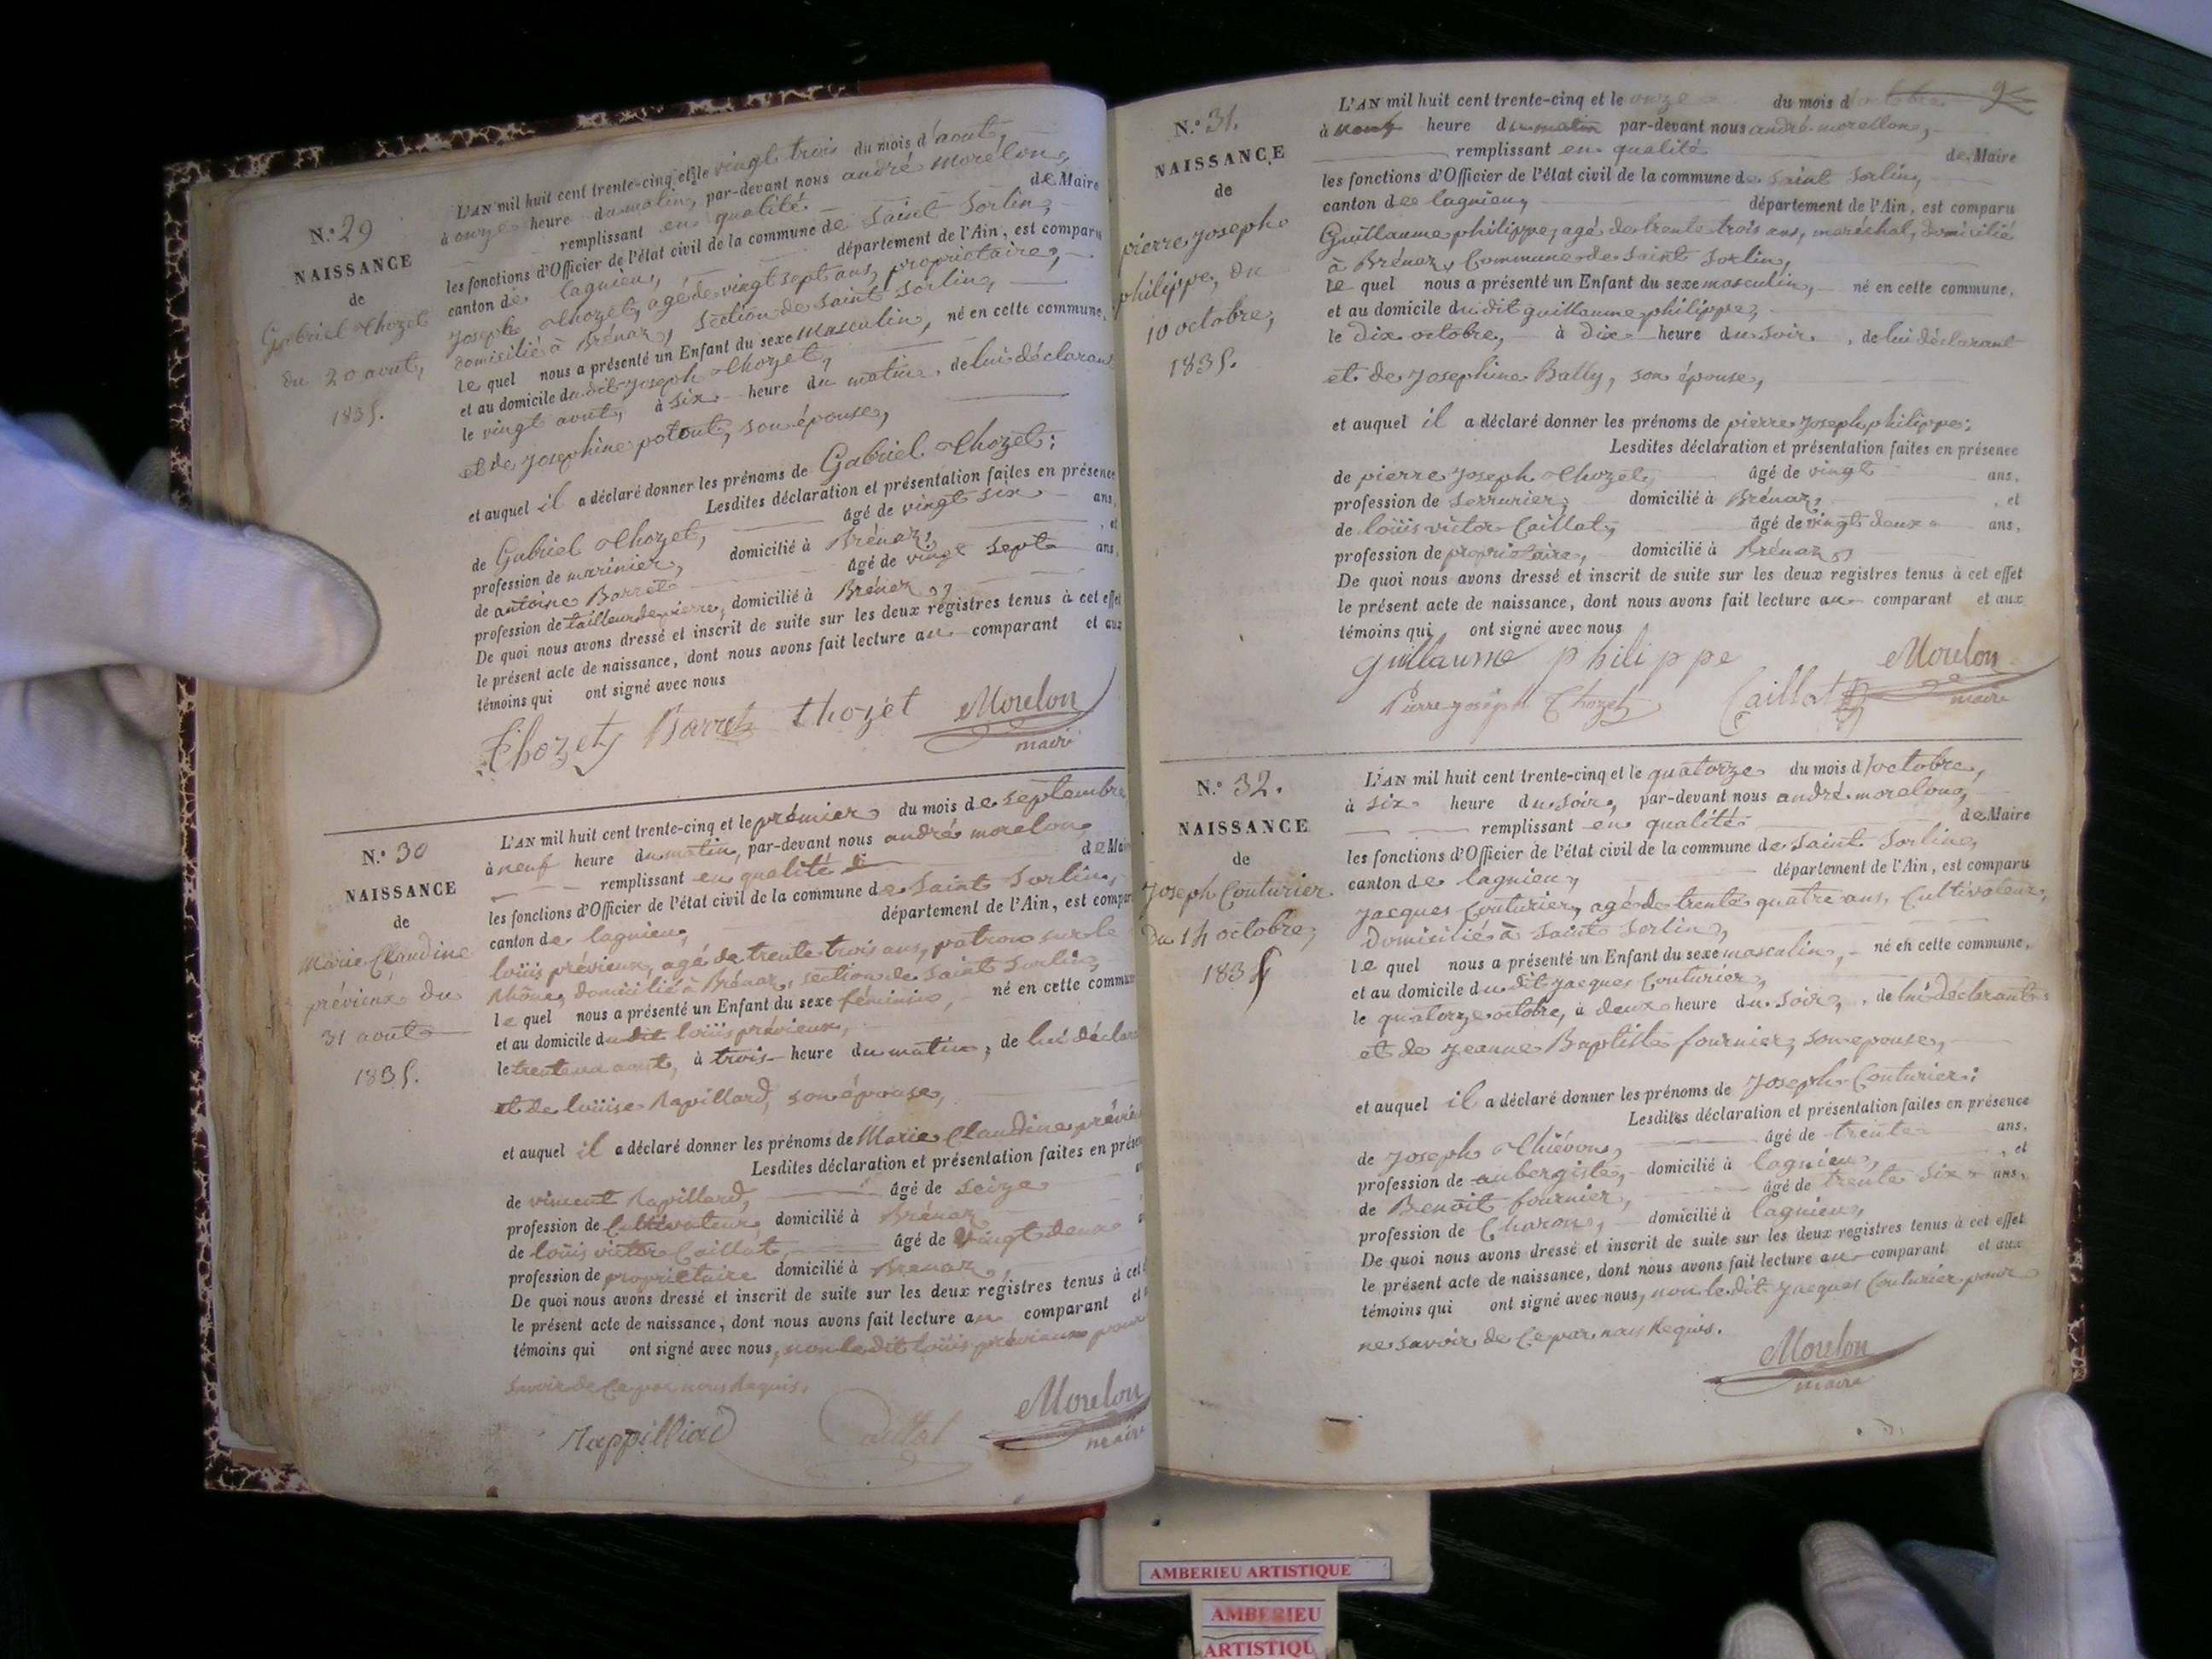 N.° 29
NAISSANCE
de
Gabriel Thozet
du 20 aout,
1835.
L'AN mil huit cent trente-cinq et le vingt trois du mois d'aout,
à onze heure du matin, par-devant nous andré morélon,
remplissant en qualité de Maire
les fonctions d'Officier de l'état civil de la commune de Saint Sorlin,
canton de lagnieu, département de l'Ain, est comparu
Joseph Thozet, agé de vingt sept ans, propriétaire,
domicilié à Brénaz, section de Saint Sorlin,
le quel nous a présenté un Enfant du sexe Masculin, né en cette commune,
et au domicile du dit Joseph Thozet,
le vingt aout, à six heure du matin, de lui déclarant
et de Josephine potout, son épouse,
et auquel il a déclaré donner les prénoms de Gabriel Thozet;
Lesdites déclaration et présentation faites en présence
de Gabriel Thozet, âgé de vingt six ans,
profession de marinier, domicilié à Brénaz, et
de antoine Barret âgé de vingt sept ans,
profession de tailleur de pierre, domicilié à Brénaz,
De quoi nous avons dressé et inscrit de suite sur les deux régistres tenus à cet effet
le présent acte de naissance, dont nous avons fait lecture au comparant et aux
témoins qui ont signé avec nous
Thozet Barret thozet Morelon
maire
N.° 30
NAISSANCE
de
Marie Claudine
prévieux du
31 aout
1835.
L'AN mil huit cent trente-cinq et le prémier du mois de septembre
à neuf heure du matin, par-devant nous andré morelon,
remplissant en qualité de Mai
les fonctions d'Officier de l'état civil de la commune de Saint Sorlin,
canton de lagnieu, département de l'Ain, est compar
loüis prévieux, agé de trente trois ans, patron sur le
Rhône, domicilié à Brénaz, section de Saint Sorlin,
le quel nous a présenté un Enfant du sexe féminin, né en cette commun
et au domicile du dit loüis prévieux,
le trente un aout, à trois heure du matin, de lui déclar
et de loüise Rapillard, son épouse,
et auquel il a déclaré donner les prénoms de Marie Claudine prévie
Lesdites déclaration et présentation faites en prése
de vincent Rapillard, âgé de seize
profession de Cultivateur, domicilié à Brénaz
de loüis victor Caillat, âgé de vingt deux
profession de propriétaire domicilié à Brénaz,
De quoi nous avons dressé et inscrit de suite sur les deux régistres tenus à cet
le présent acte de naissance, dont nous avons fait lecture au comparant et
témoins qui ont signé avec nous, non le dit loüis prévieux pour
savoir de ce par nous Requis.
Rappilliard Caillat Morelon
maire
N.° 31.
NAISSANCE
de
pierre Joseph
philippe, du
10 octobre,
1835.
L'AN mil huit cent trente-cinq et le onze du mois d'octobre
à heure du matin par-devant nous andré morellon,
remplissant en qualité de Maire
les fonctions d'Officier de l'état civil de la commune de Saint Sorlin,
canton de lagnieu, département de l'Ain, est comparu
Guillaume philippe, agé de trente trois ans, maréchal, domicilié
à Brénaz, Commune de Saint Sorlin,
le quel nous a présenté un Enfant du sexe masculin, né en cette commune,
et au domicile du dit guillaume philippe,
le dix octobre, à dix heure du soir, de lui déclarant
et de Josephine Bally, son épouse,
et auquel il a déclaré donner les prénoms de pierre Joseph philippe;
Lesdites déclaration et présentation faites en présence
de pierre Joseph Thozet, âgé de vingt ans,
profession de serrurier, domicilié à Brénaz, et
de loüis victor Caillat, âgé de vingt deux ans,
profession de propriétaire, domicilié à Brénaz,
De quoi nous avons dressé et inscrit de suite sur les deux registres tenus à cet effet
le présent acte de naissance, dont nous avons fait lecture au comparant et aux
témoins qui ont signé avec nous
guillaume philippe Morelon
Pierre joseph Thozet Caillat maire
N.° 32.
NAISSANCE
de
Joseph Couturier
du 14 octobre,
1835
L'AN mil huit cent trente-cinq et le quatorze du mois d'octobre,
à six heure du soir, par-devant nous andré morelon,
remplissant en qualité de Maire
les fonctions d'Officier de l'état civil de la commune de Saint Sorlin,
canton de lagnieu, département de l'Ain, est comparu
Jacques Couturier, agé de trente quatre ans, Cultivateur,
domicilié à Saint Sorlin,
le quel nous a présenté un Enfant du sexe masculin, né en cette commune,
et au domicile du dit Jacques Couturier,
le quatorze octobre, à deux heure du soir, de lui déclarant
et de Jeanne Baptiste fournier, son epouse,
et auquel il a déclaré donner les prénoms de Joseph Couturier;
Lesdites déclaration et présentation faites en présence
de Joseph Thiévon, âgé de trente ans,
profession de aubergiste, domicilié à lagnieu, et
de Benoit fournier, âgé de trente six ans,
profession de Charon, domicilié à lagnieu,
De quoi nous avons dressé et inscrit de suite sur les deux registres tenus à cet effet
le présent acte de naissance, dont nous avons fait lecture au comparant et aux
témoins qui ont signé avec nous, non le dit Jacques Couturier pour
ne savoir de ce par nous Requis.
Morelon
maire
AMBERIEU ARTISTIQUE
AMBERIEU
ARTISTIQU